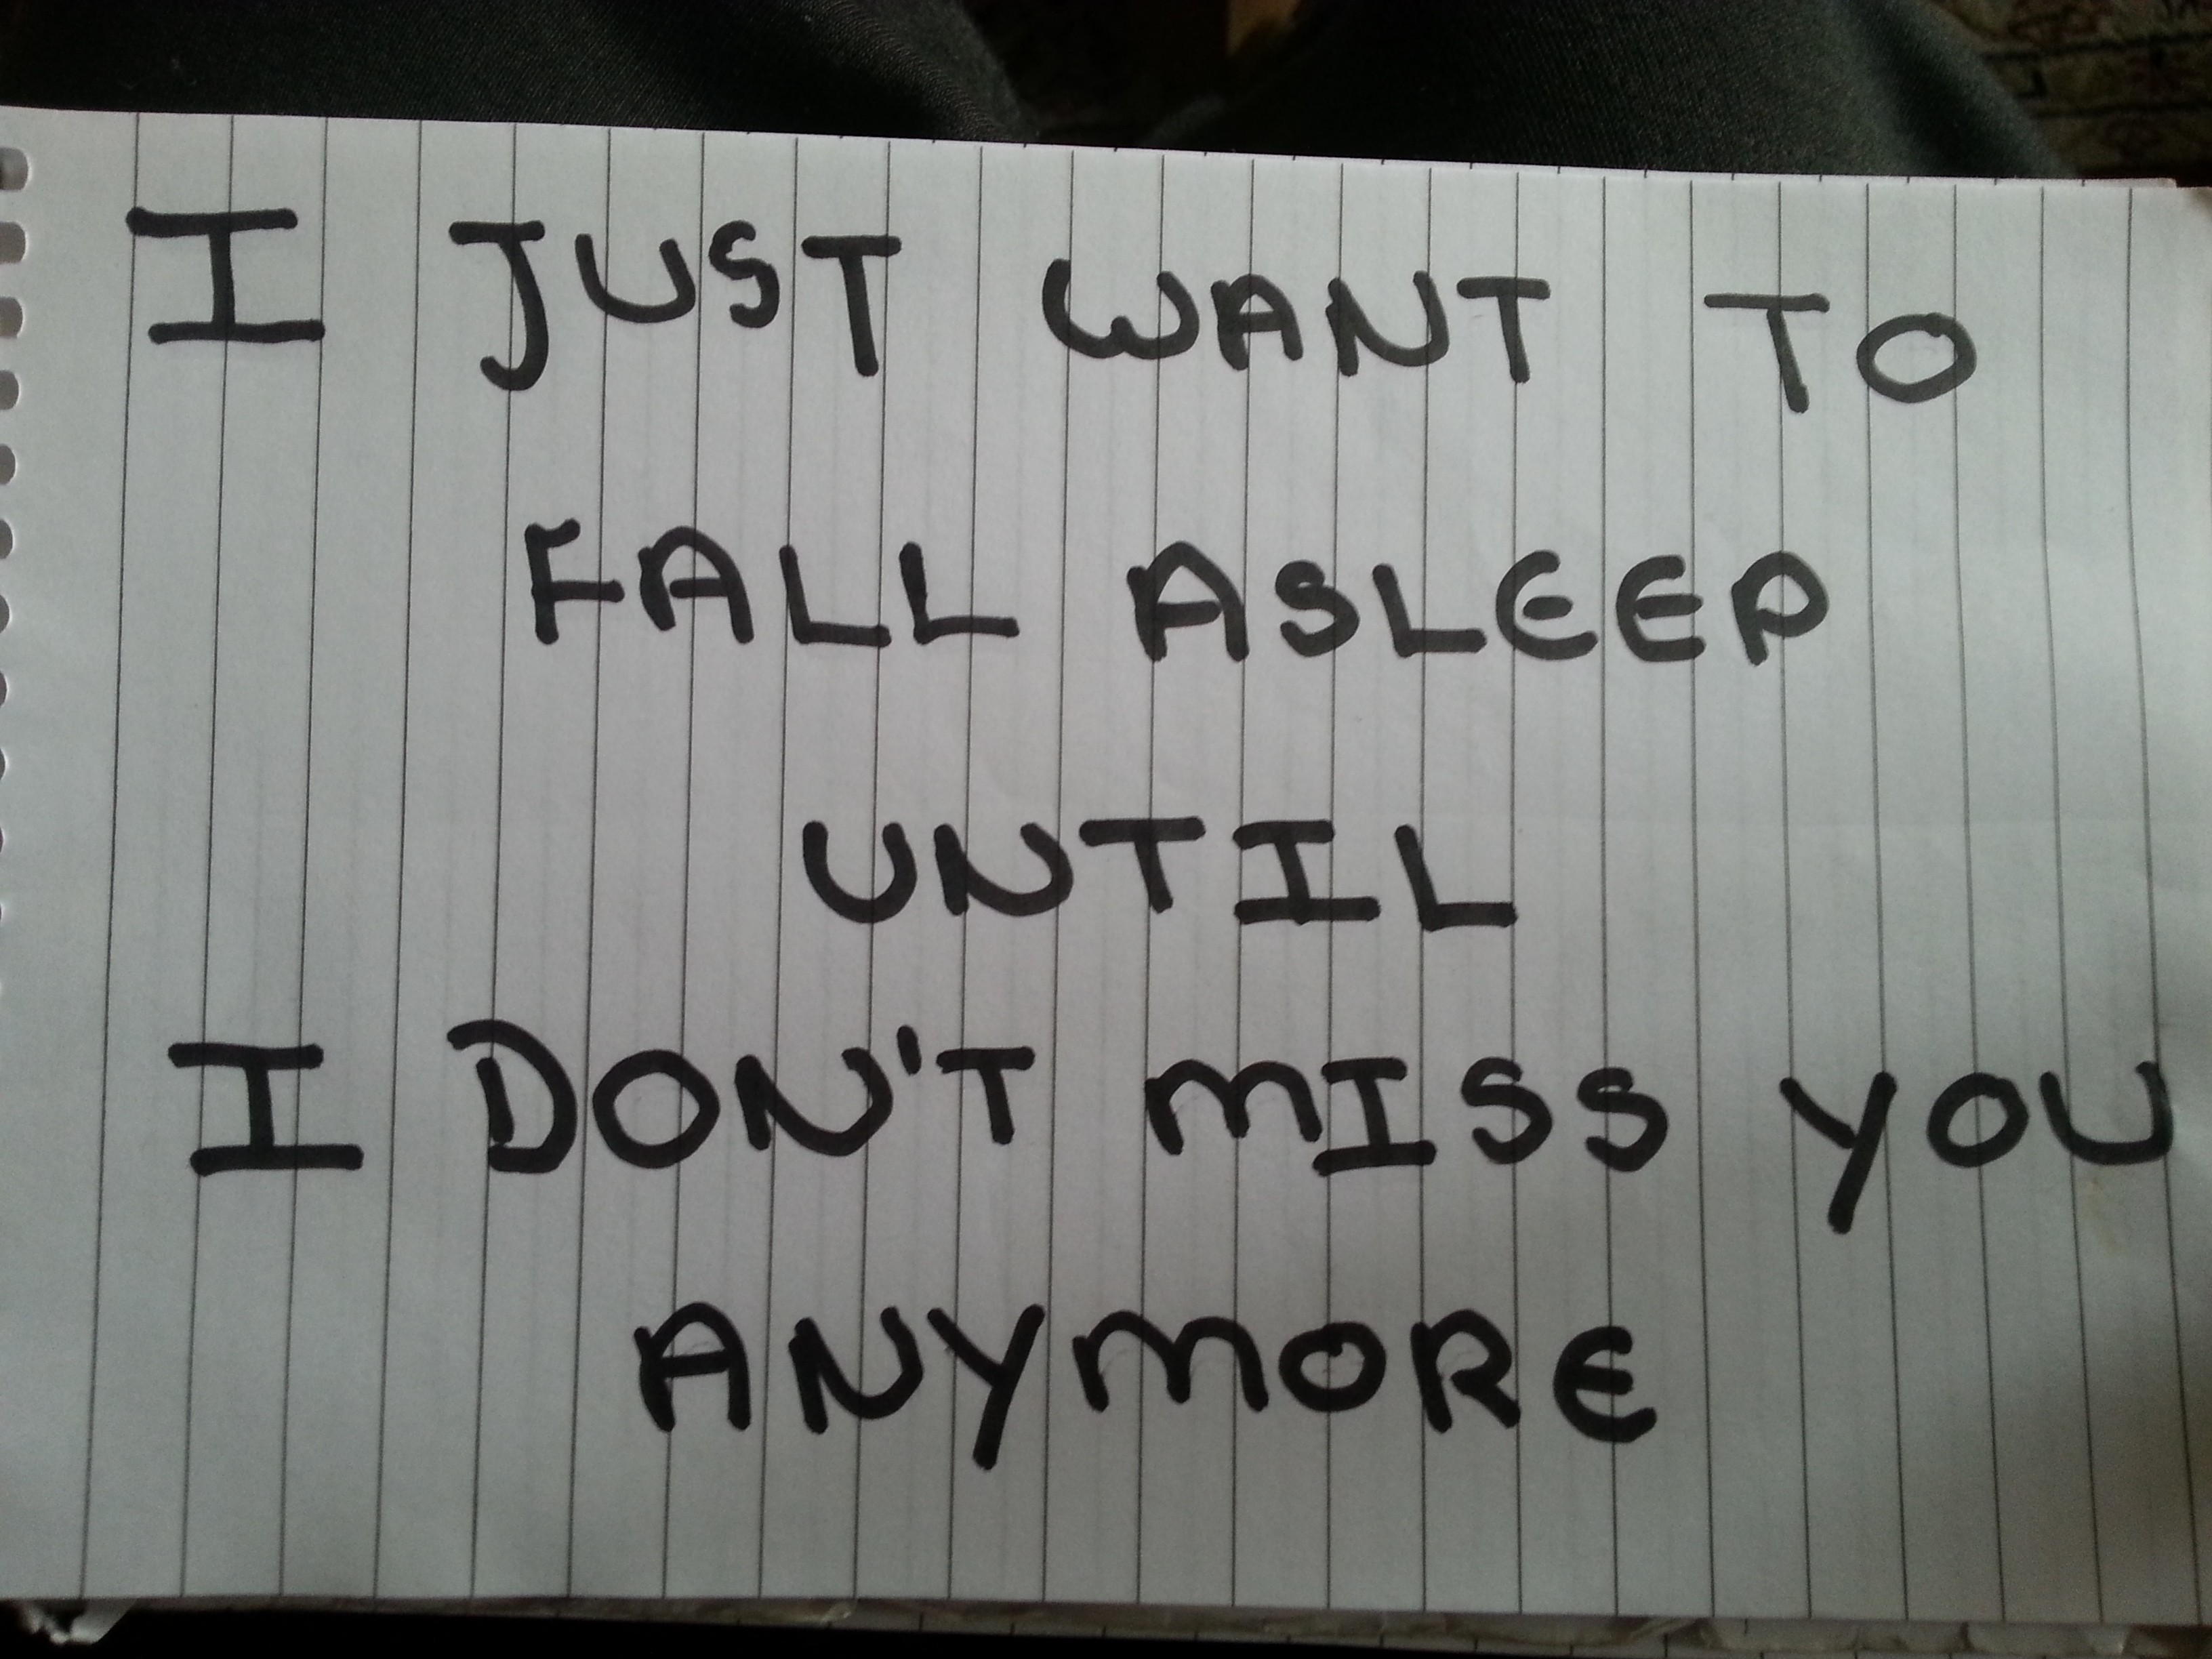 I JUST WANT TO
FALL ASLEEP
UNTIL
I DON'T MISS YOU
ANYMORE